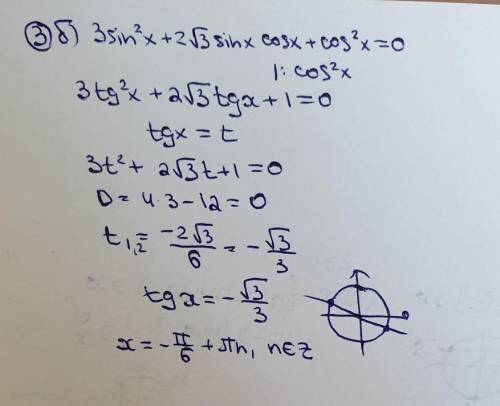 ③ б) 3sin²x+2√3sinx cosx+cos²x=0
|: cos²x
3tg²x+2√3tgx+1=0
tgx=t
3t²+2√3t+1=0
D=4·3-12=0
t₁,₂=-2√3/6=-√3/3
tgx=-√3/3
x=-π/6+πn, n∈Z